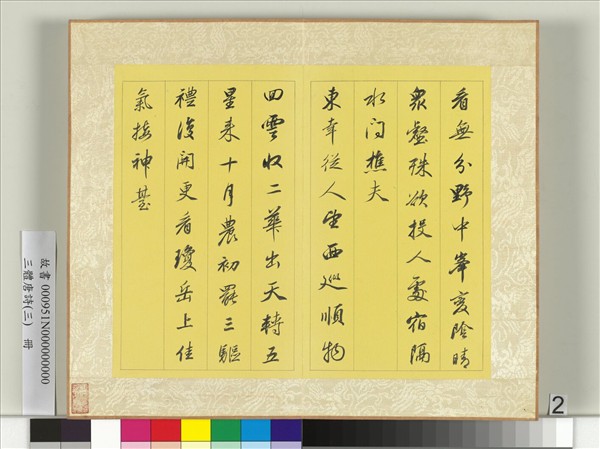 看無分野中峯變陰晴
衆壑殊欲投人處宿隔
水问樵夫
東幸從人望西巡順物
回雲收二華出天轉五
星来十月農初罷三驅
禮後開更看瓊岳上佳
氣接神臺
故書 000951N000000000
三體唐詩(三) 冊
2